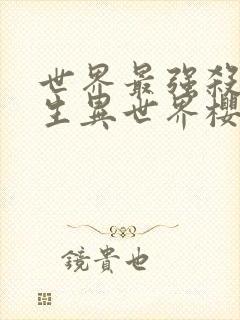 世界最强殺
生異世界櫻
鏡貴也